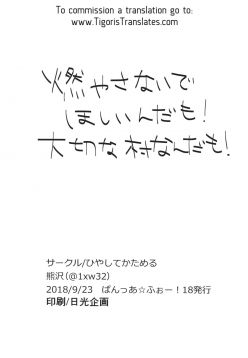 To commission a translation go to:
www.TigorisTranslates.com
燃やさないで
ほしいんだも!
大切な村なんだも!
サークル/ひやしてかためる
熊沢(@1xw32)
2018/9/23 ぱんっあ☆ふぉー!18発行
印刷/日光企画